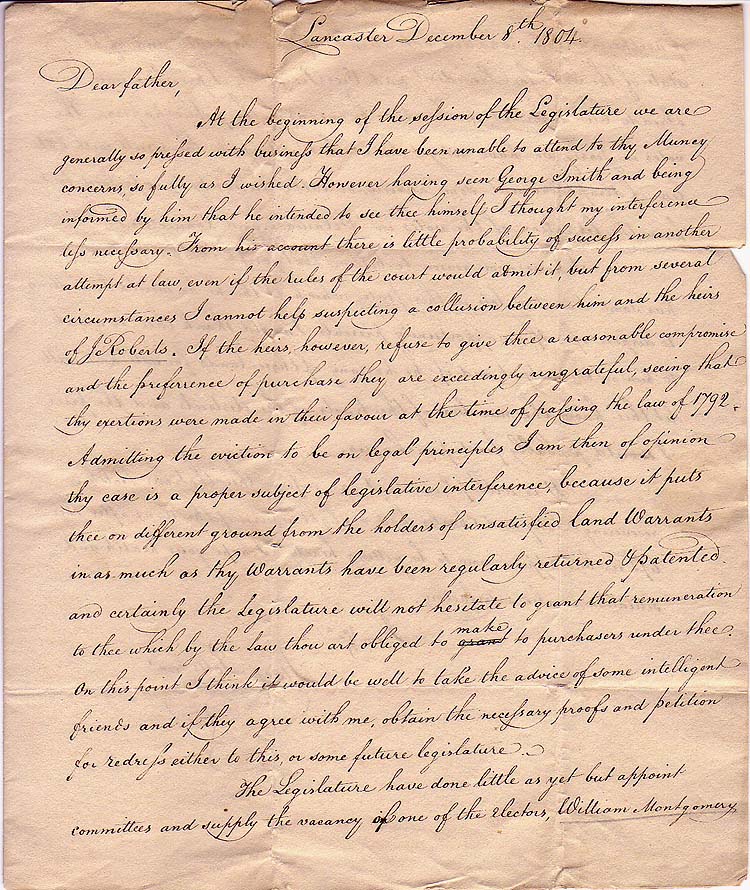 Lancaster December 8th. 1804.
Dear father,
At the beginning of the session of the Legislature we are
generally so pressed with business that I have been unable to attend to thy Muncy
concerns, so fully as I wished. However having seen George Smith and being
informed by him that he intended to see thee himself I thought my interference
less necessary. From his account there is little probability of success in another
attempt at law, even if the rules of the court would admit it, but from several
circumstances I cannot help suspecting a collusion between him and the heirs
of J Roberts. If the heirs, however, refuse to give thee a reasonable compromise
and the preferrence of purchase they are exceedingly ungrateful, seeing that
thy exertions were made in their favour at the time of passing the law of 1792.
Admitting the eviction to be on legal principles I am then of opinion
thy case is a proper subject of legislative interference, because it puts
thee on different ground from the holders of unsatisfied land Warrants
in as much as thy Warrants have been regularly returned & patented.
and certainly the Legislature will not hesitate to grant that remuneration
to thee which by the Law thou art obliged to grant make to purchasers under thee.
On this point I think it would be well to take the advice of some intelligent
friends and if they agree with me, obtain the necessary proofs and petition
for redress either to this, or some future legislature.
The Legislature have done little as yet but appoint
committees and supply the vacancy of one of the Electors, William Montgomery